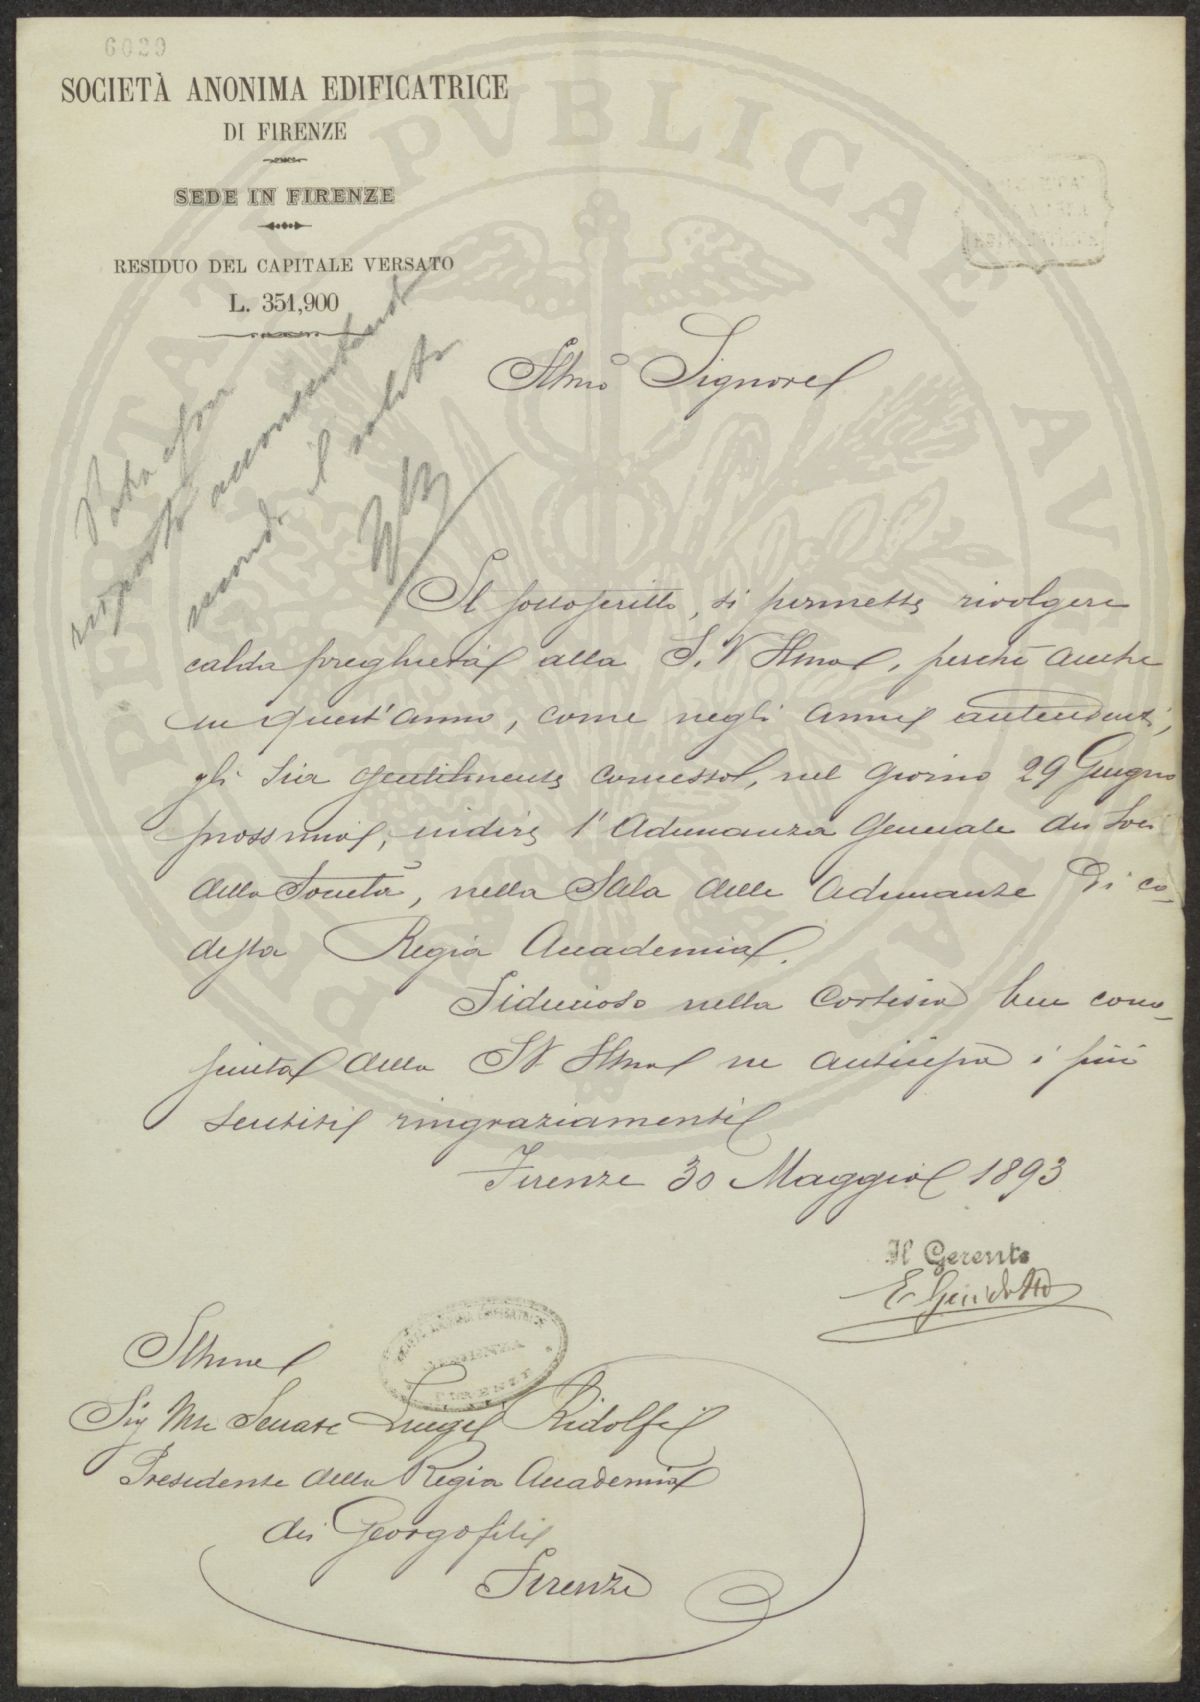 6029
SOCIETÀ ANONIMA EDIFICATRICE
DI FIRENZE
SEDE IN FIRENZE
RESIDUO DEL CAPITALE VERSATO
L. 351,900
Illmo Signore
risposta accondiscendendo
il solito
Il sottoscritto, si permette rivolgere
calda preghiera alla S. V Illma, perchè anche
in quest'anno, come negli anni antecedenti,
gli sia gentilmente concesso, nel giorno 29 Giugno
prossimo, indire l'Adunanza Generale dei Soci
della Società, nella Sala delle Adunanze di co-
desta Regia Accademia.
Fiducioso nella cortesia ben cono-
sciuta della SV Illma ne anticipa i più
sentiti ringraziamenti
Firenze 30 Maggio 1893
Il Gerente
E Guidotti
Illmo
Sig Mse Senatre Luigi Ridolfi
Presidente della Regia Accademia
dei Georgofili
Firenze
PROPRIETATI PVBLICAE AVGENDAE